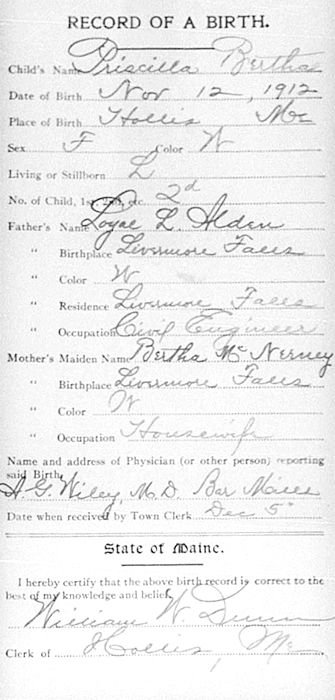 RECORD OF A BIRTH.
Child's Name Priscilla Bertha
Date of Birth Nov 12, 1912
Place of Birth Hollis Me
Sex F Color W
Living or Stillborn L
No. of Child, 1st, 2nd, etc. 2d
Father's Name Loyal L. Alden
" Birthplace Livermore Falls
" Color W
" Residence Livermore Falls
" Occupation Civil Engineer
Mother's Maiden Name Bertha McNerney
" Birthplace Livermore Falls
" Color W
" Occupation Housewife
Name and address of Physician (or other person) reporting
said Birth,
A. G. Wiley, M.D. Bar Mills
Date when received by Town Clerk Dec 5"
State of Maine.
I hereby certify that the above birth record is correct to the
best of my knowledge and belief.
William W. Dunn
Clerk of Hollis, Me